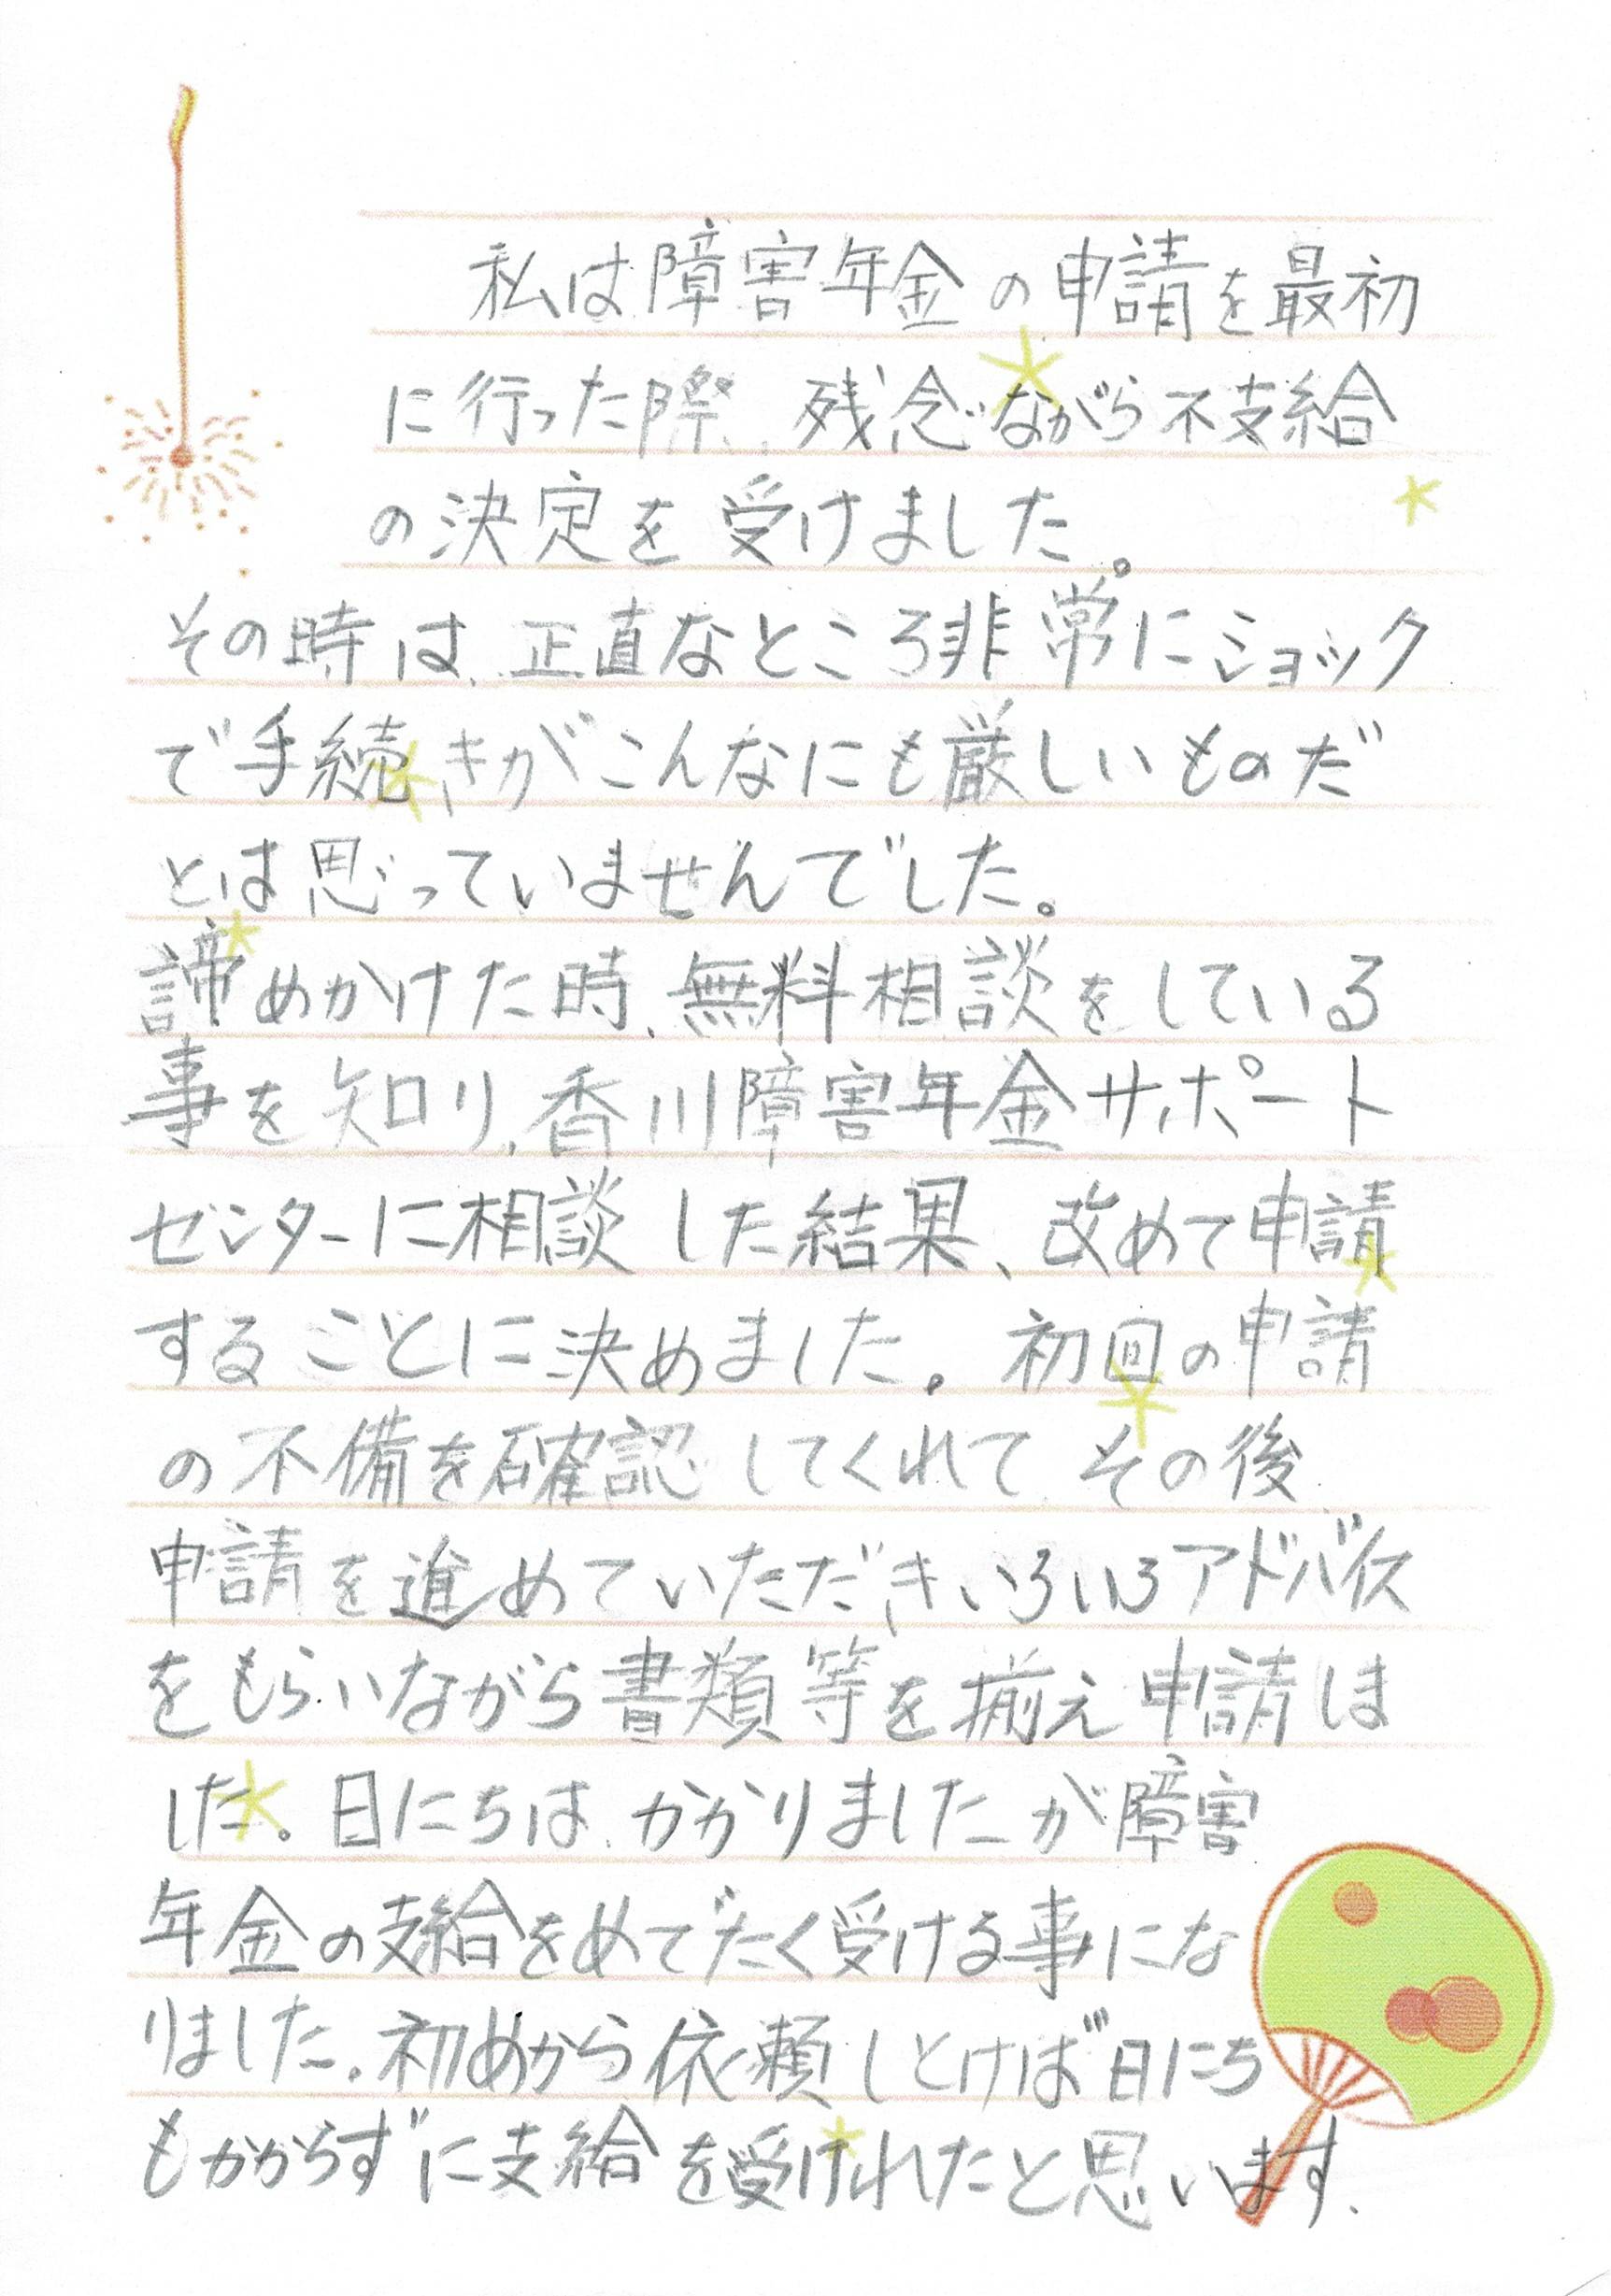 私は障害年金の申請を最初
に行った際、残念ながら不支給
の決定を受けました。
その時は、正直なところ非常にショック
で手続きがこんなにも厳しいものだ
とは思っていませんでした。
諦めかけた時、無料相談をしている
事を知り、香川障害年金サポート
センターに相談した結果、改めて申請
することに決めました。初回の申請
の不備を確認してくれて、その後
申請を進めていただきいろいろアドバイス
をもらいながら書類等を揃え申請は
した。日にちは、かかりましたが障害
年金の支給をめでたく受ける事にな
りました。初めから依頼しとけば日にち
もかからずに支給を受けれたと思います。